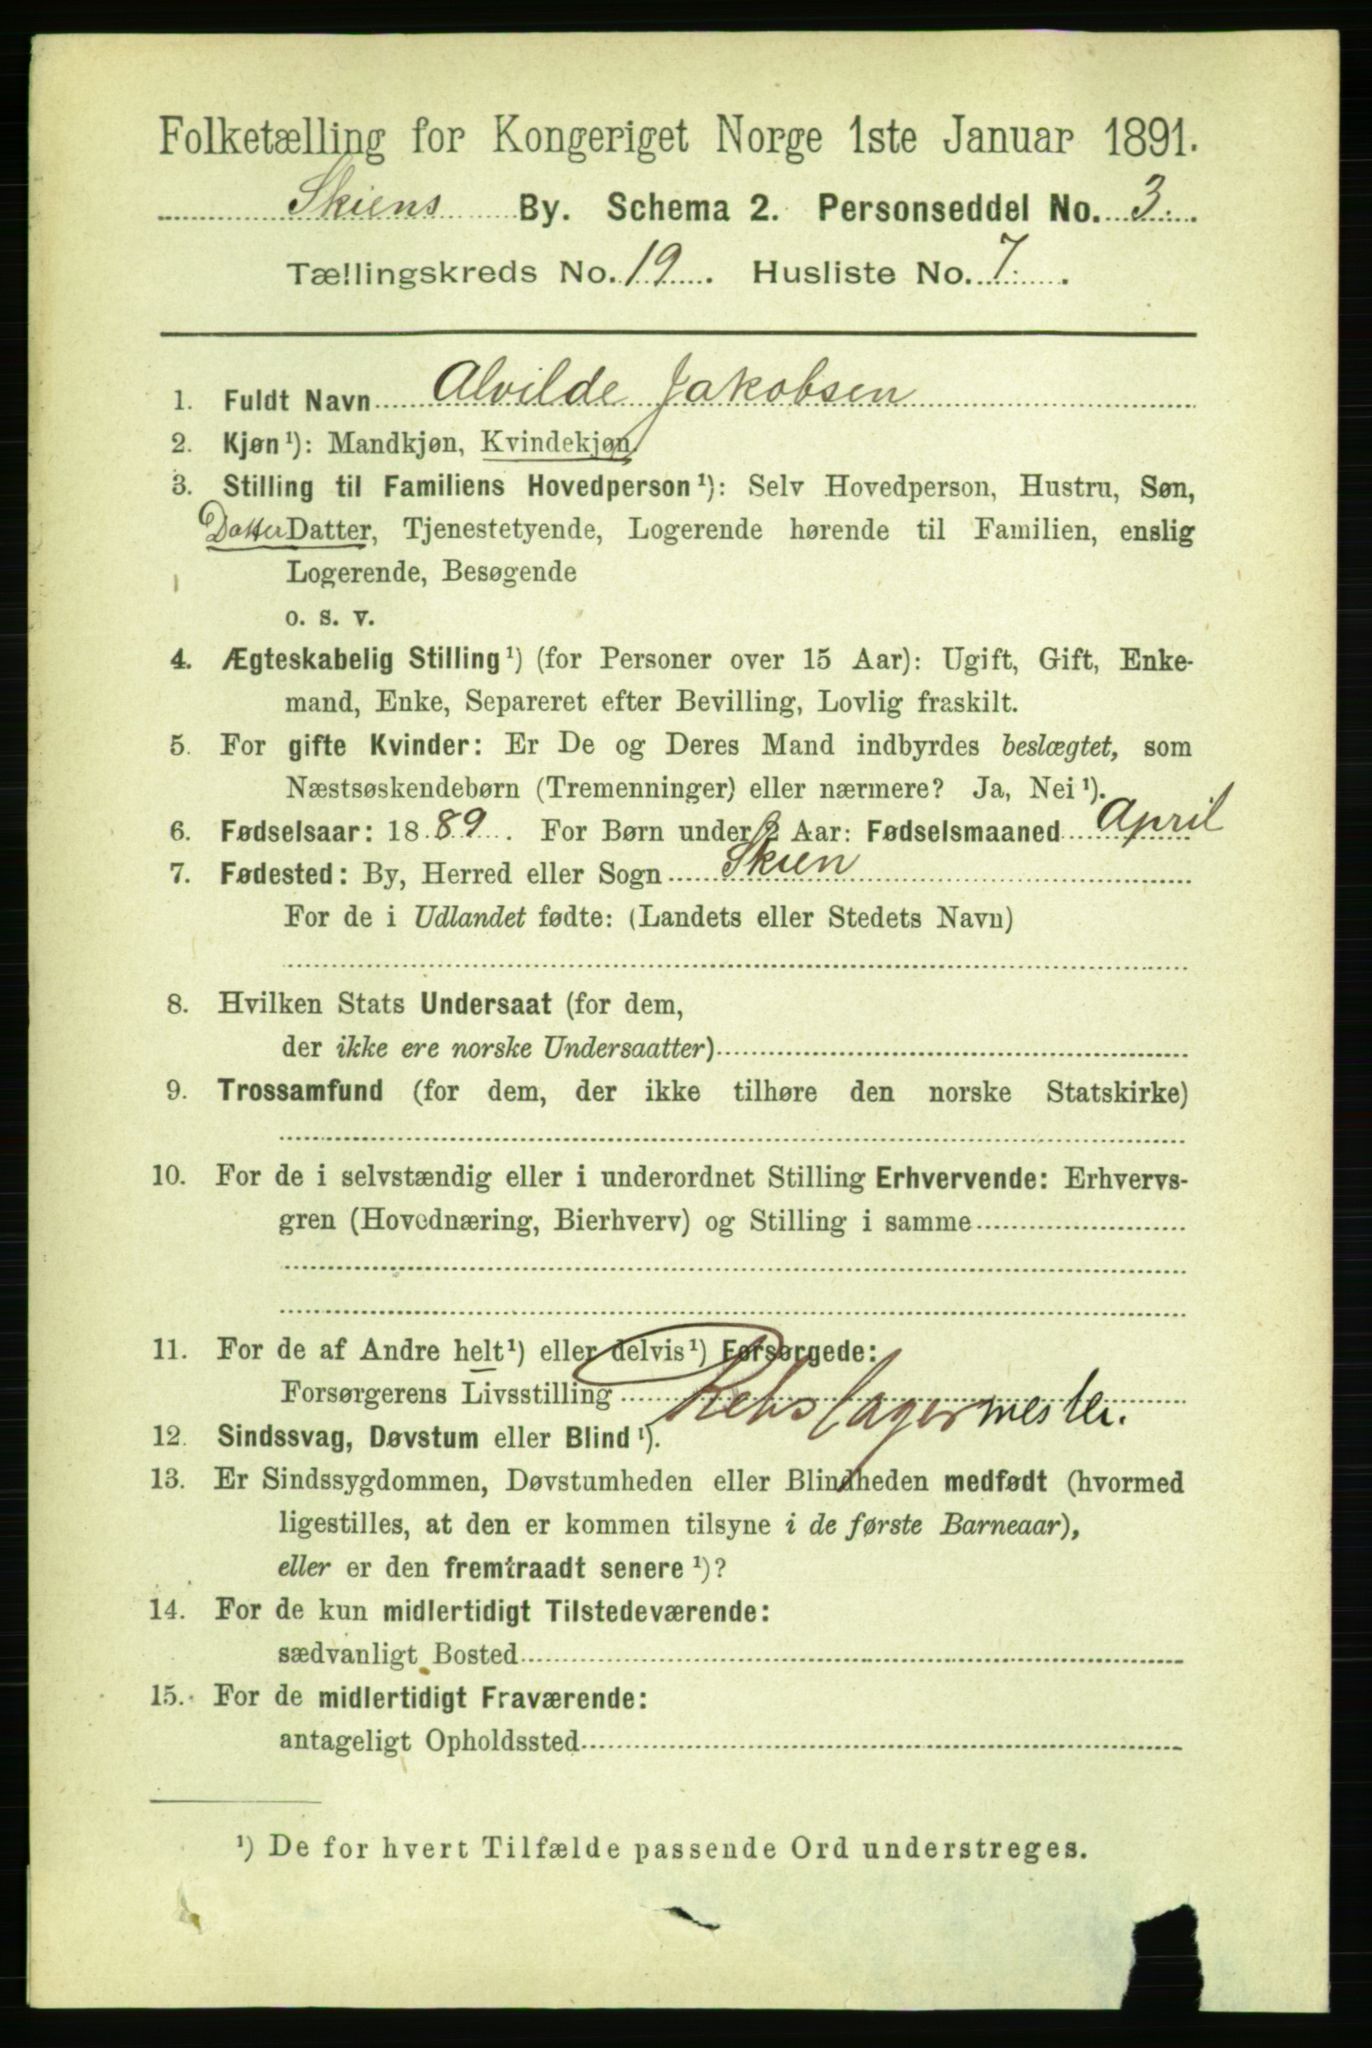 Folketælling for Kongeriget Norge 1ste Januar 1891.
Skiens By. Schema 2. Personseddel No. 3.
Tællingskreds No. 19. Husliste No. 7.
1. Fuldt Navn Alvilde Jakobsen
2. Kjøn¹): Mandkjøn, Kvindekjøn
3. Stilling til Familiens Hovedperson¹): Selv Hovedperson, Hustru, Søn,
Datter Datter, Tjenestetyende, Logerende hørende til Familien, enslig
Logerende, Besøgende
o. s. v.
4. Ægteskabelig Stilling¹) (for Personer over 15 Aar): Ugift, Gift, Enke-
mand, Enke, Separeret efter Bevilling, Lovlig fraskilt.
5. For gifte Kvinder: Er De og Deres Mand indbyrdes beslægtet, som
Næstsøskendebørn (Tremenninger) eller nærmere? Ja, Nei¹).
6. Fødselsaar: 1889. For Børn under 2 Aar: Fødselsmaaned April
7. Fødested: By, Herred eller Sogn Skien
For de i Udlandet fødte: (Landets eller Stedets Navn)
8. Hvilken Stats Undersaat (for dem,
der ikke ere norske Undersaatter)
9. Trossamfund (for dem, der ikke tilhøre den norske Statskirke)
10. For de i selvstændig eller i underordnet Stilling Erhvervende: Erhvervs-
gren (Hovednæring, Bierhverv) og Stilling i samme
11. For de af Andre helt¹) eller delvis¹) Forsørgede:
Forsørgerens Livsstilling Rebslagermester.
12. Sindssvag, Døvstum eller Blind¹).
13. Er Sindssygdommen, Døvstumheden eller Blindheden medfødt (hvormed
ligestilles, at den er kommen tilsyne i de første Barneaar),
eller er den fremtraadt senere¹)?
14. For de kun midlertidigt Tilstedeværende:
sædvanligt Bosted
15. For de midlertidigt Fraværende:
antageligt Opholdssted
¹) De for hvert Tilfælde passende Ord understreges.